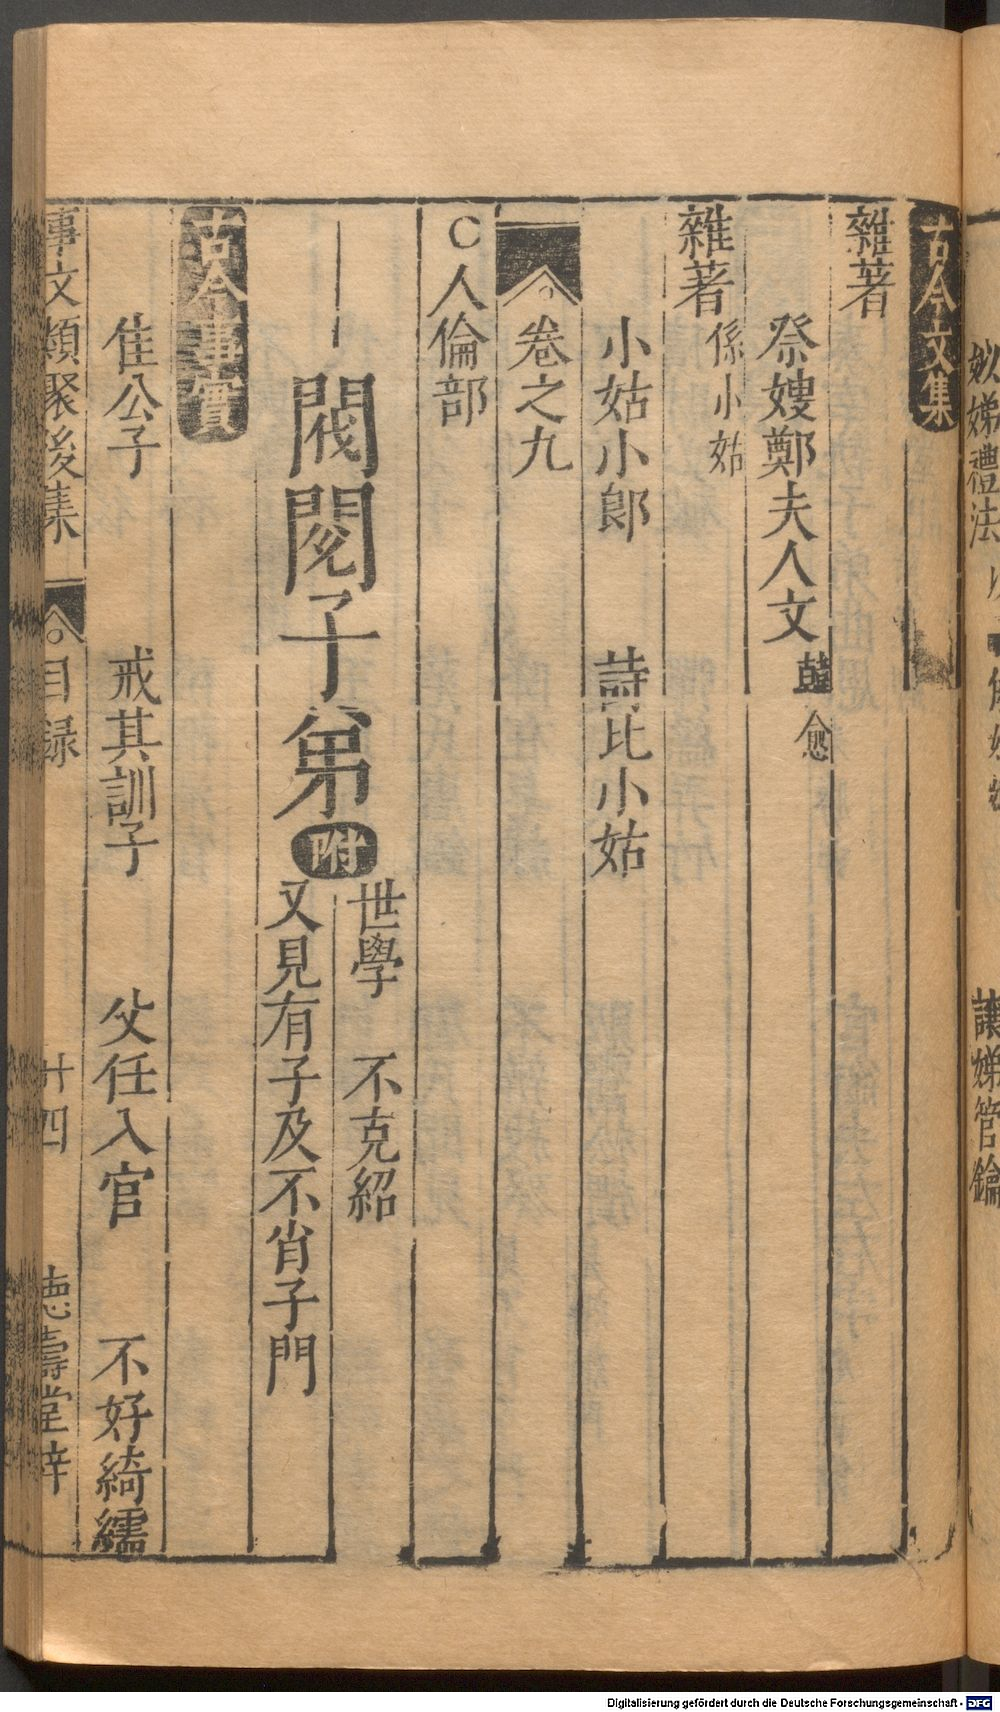 古今文集
雜著
祭嫂鄭夫人文 韓愈
雜著 係小姑
小姑小郎 詩比小姑
卷之九
○人倫部
閥閱子弟 附 世學 不克紹
又見有子及不肖子門
古今事實
佳公子 戒其訓子 父任入官 不好綺繻
事文類聚後集 目録 廿四 德壽堂梓
讓娣管鑰
Digitalisierung gefördert durch die Deutsche Forschungsgemeinschaft - DFG